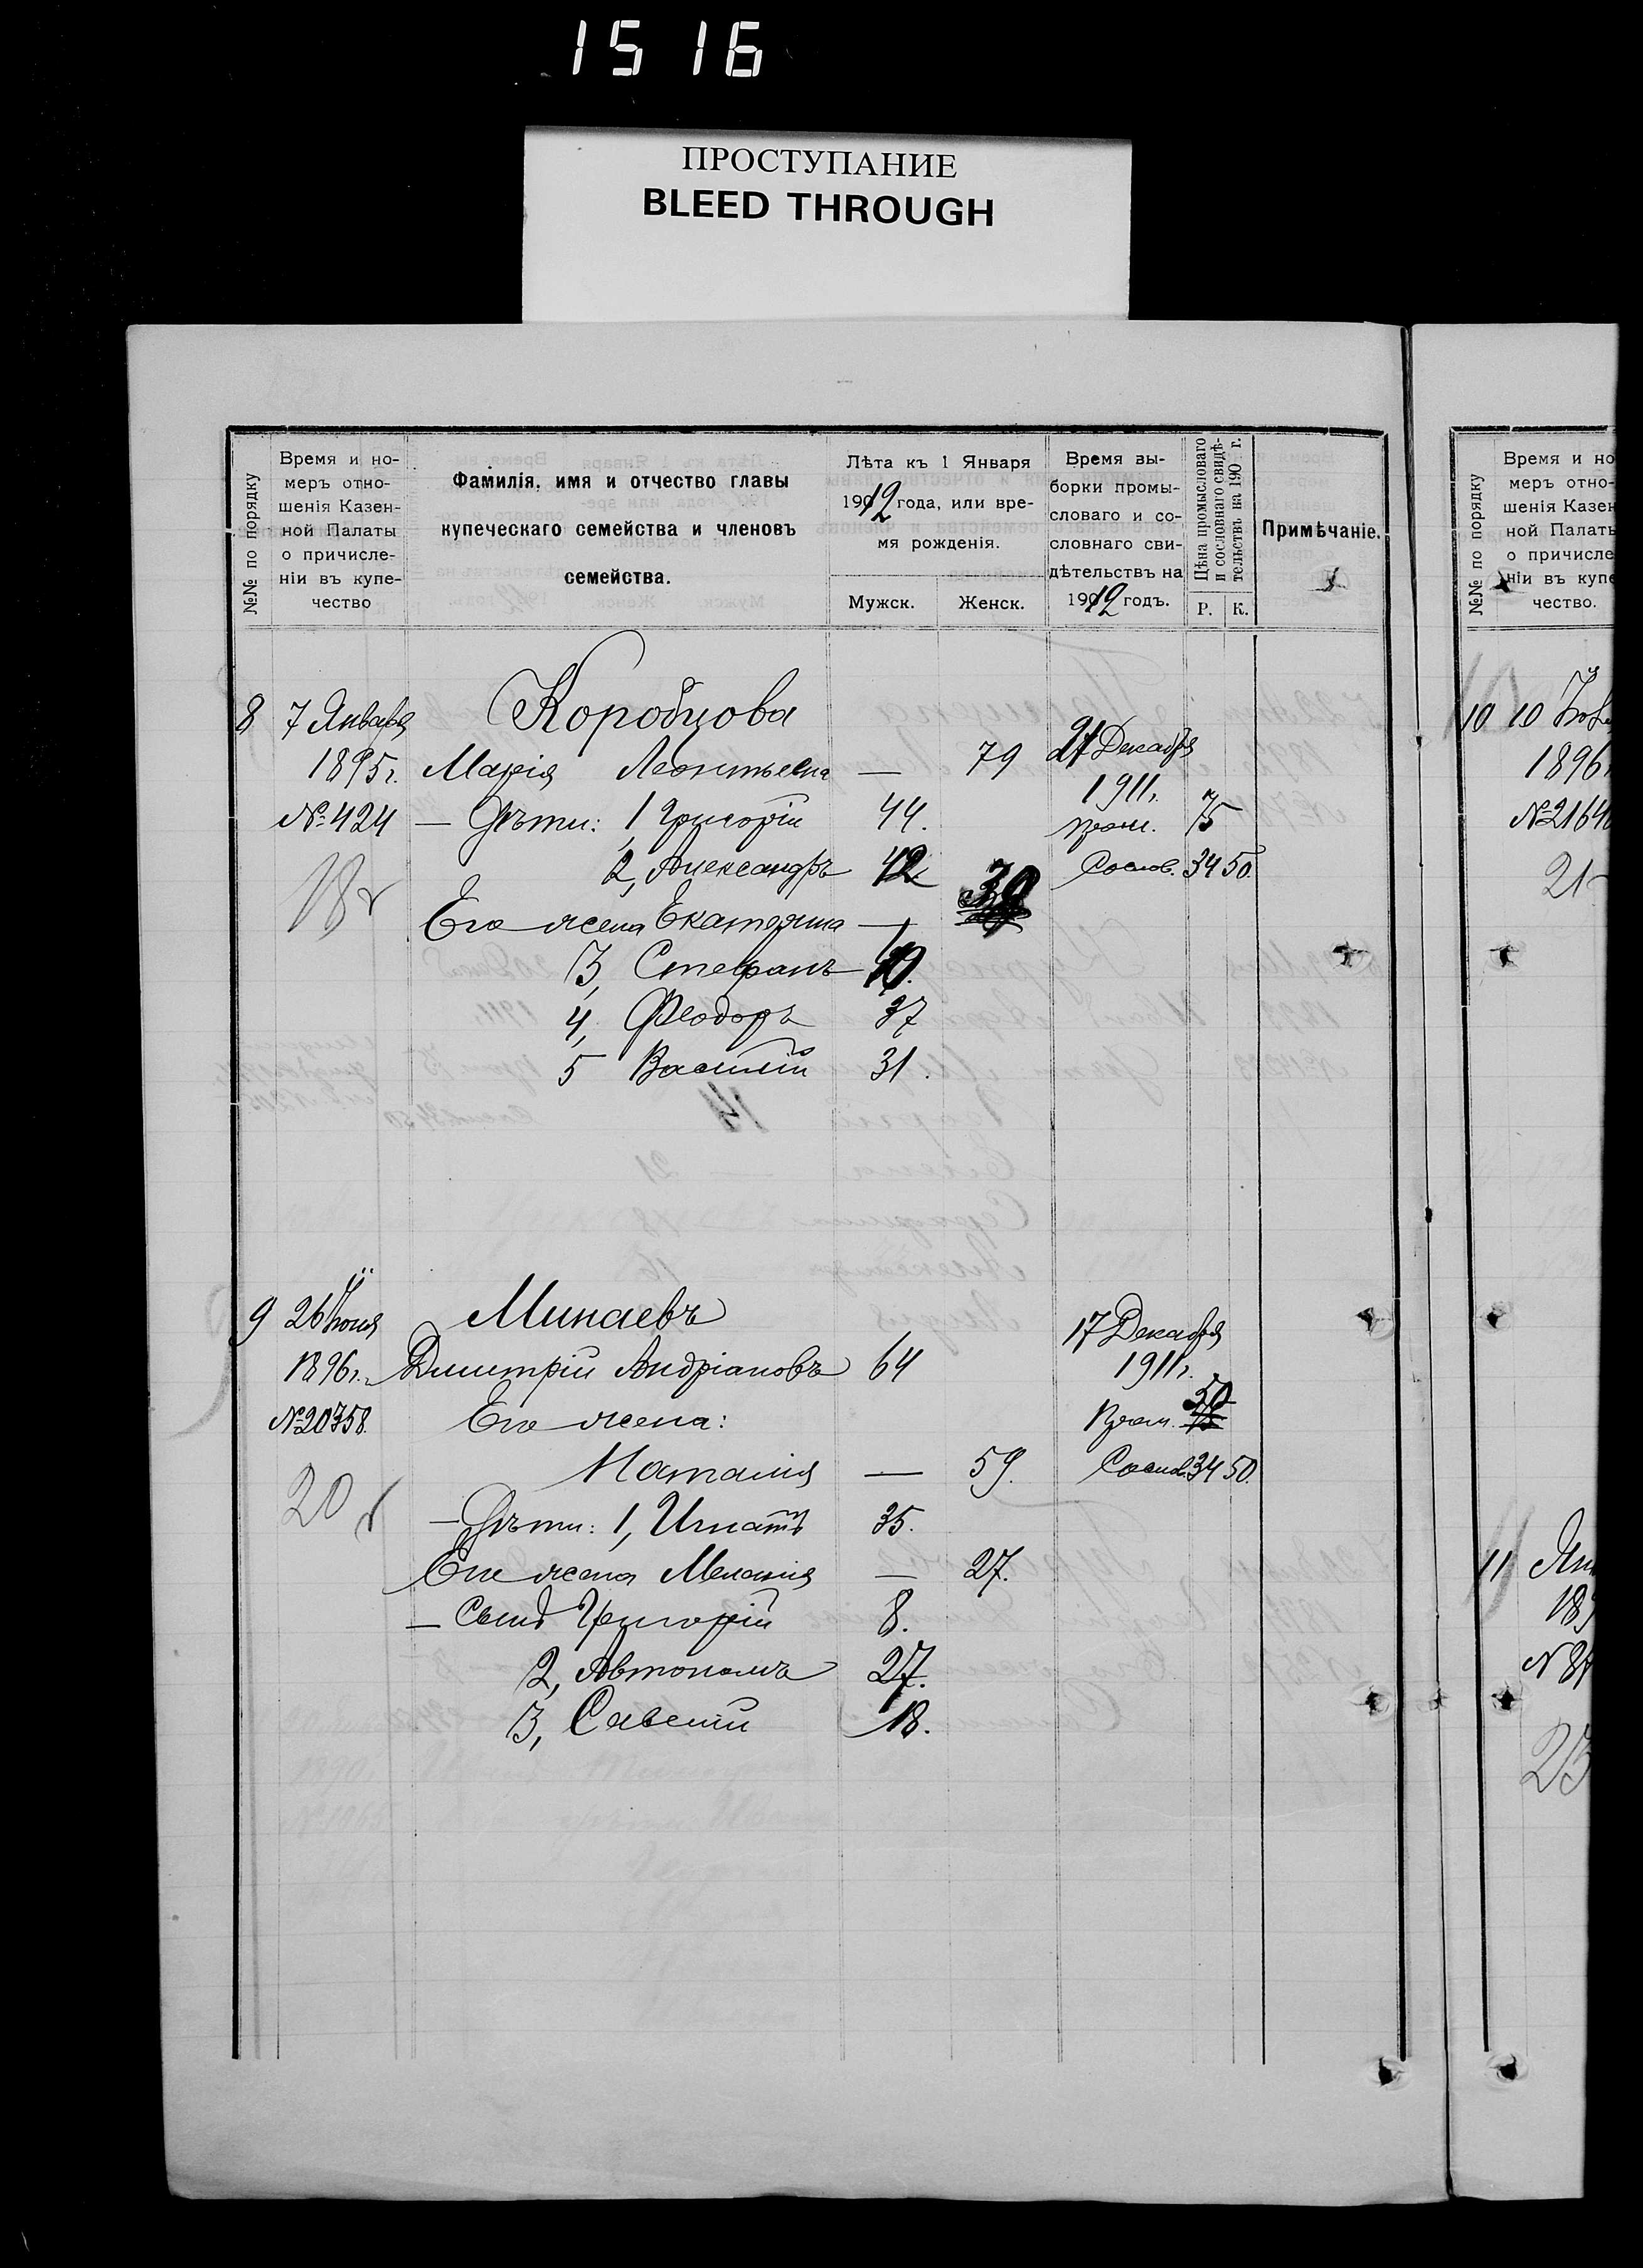 1516
ПРОСТУПАНИЕ
BLEED THROUGH
№№ по порядку
Время и но-
меръ отно-
шенія Казен-
ной Палаты
о причисле-
ніи въ купе-
чество
Фамилія, имя и отчество главы
купеческаго семейства и членовъ
семейства.
Лѣта къ 1 Января
1912 года, или вре-
мя рожденія.
Мужск. Женск.
Время вы-
борки промы-
словаго и со-
словнаго сви-
дѣтельствъ на
1912 годъ.
Цѣна промысловаго
и сословнаго свидѣ-
тельствъ на 190 г.
Р. К.
Примѣчаніе.
8 7 Января Коробцова
1895г. Марія Леонтьевна — 79 21 Декабря
1911г.
№ 424 — Дѣти: 1, Григорій 44. пром. 75
2, Александръ 42 Сослов. 34 50.
18
Его жена Екатерина — 39
3, Стефанъ 40.
4, Феодоръ 37
5 Василій 31.
9 26 Іюня Минаевъ 17 Декабря
1896г. Димитрій Андріановъ 64 1911г.
№20358. Его жена: Пром. 50
Наталія — 59. Сослов. 34 50.
20
— Дѣти: 1, Игнатъ 35.
Его жена Меланія — 27.
— Сынъ Григорій 8.
2, Автономъ 27.
3, Савелій 18.
№№ по порядку
Время и но
меръ отно-
шенія Казен
ной Палаты
о причисле
ніи въ купе
чество.
10 10
1896
№2164
21
11 Ян
189
№ 8
23